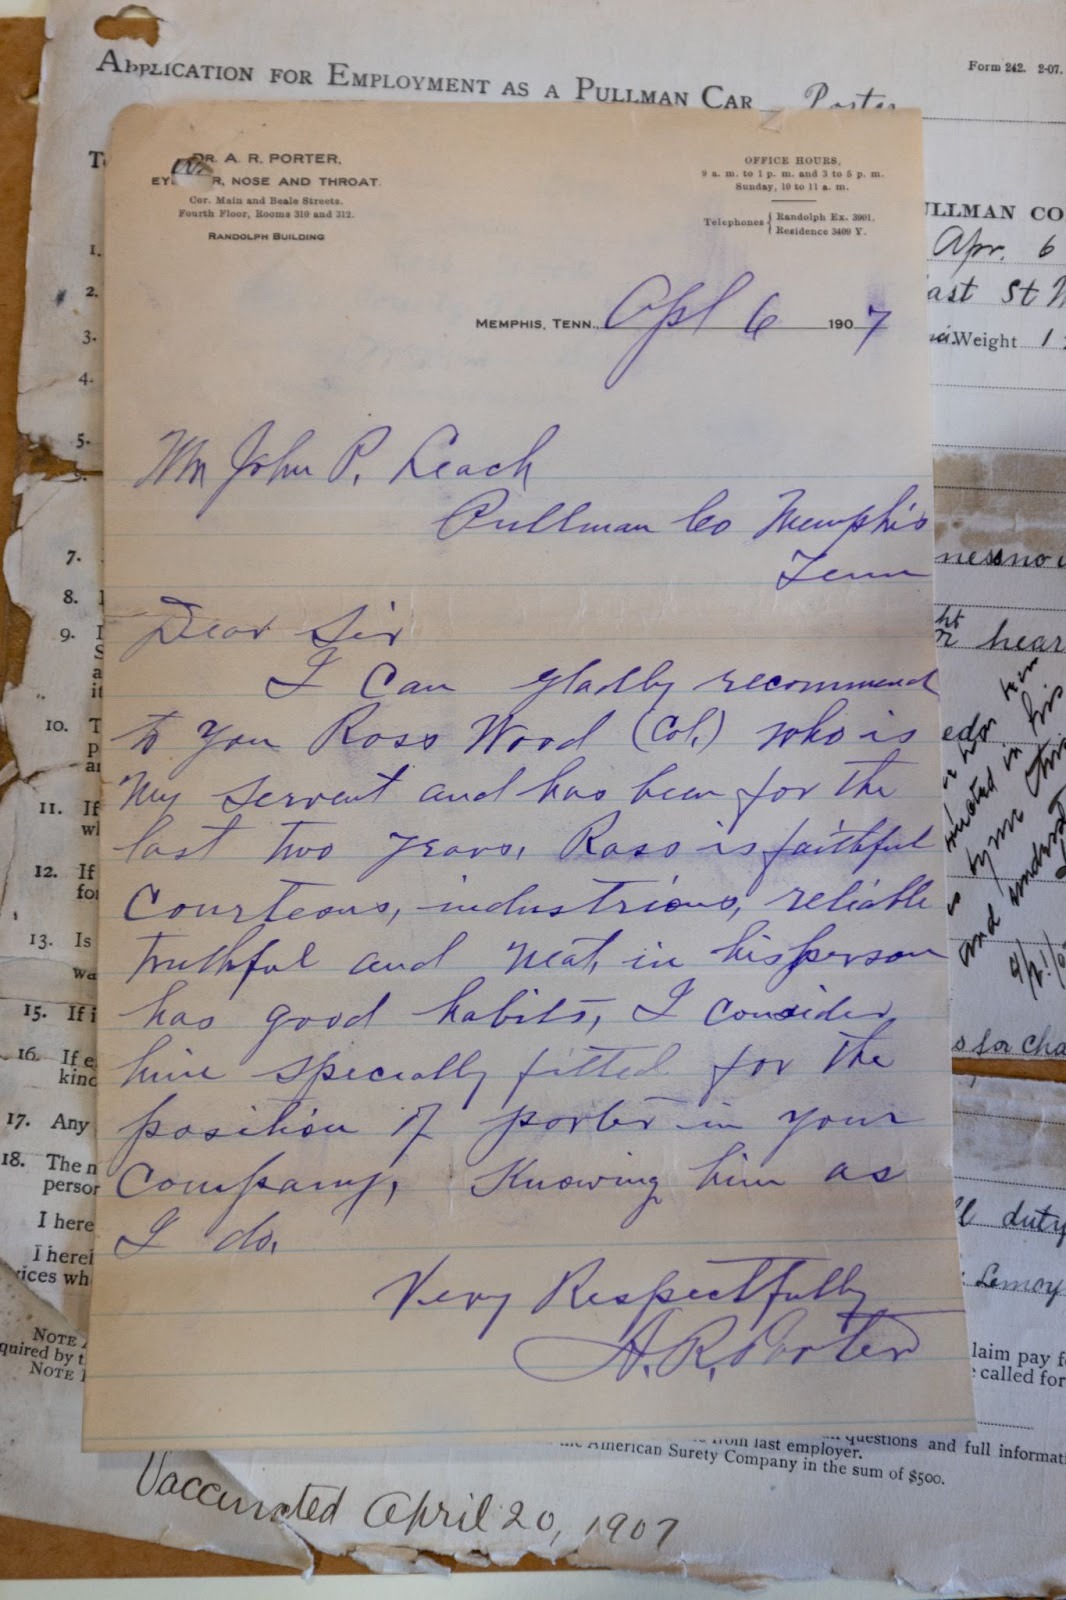 APPLICATION FOR EMPLOYMENT AS A PULLMAN CAR Porter
Form 242. 2-07.
DR. A. R. PORTER,
NOSE AND THROAT.
Cor. Main and Beale Streets.
Fourth Floor, Rooms 310 and 312.
RANDOLPH BUILDING
OFFICE HOURS,
9 a. m. to 1 p. m. and 3 to 5 p. m.
Sunday, 10 to 11 a. m.
Telephones { Randolph Ex. 3901.
Residence 3409 Y.
MEMPHIS, TENN., Apl 6 1907
Mr John P. Leach
Pullman Co Memphis
Tenn
Dear Sir
I can gladly recommend
to you Ross Wood (Col.) who is
my servent and has been for the
last two years, Ross is faithful
Courteous, industrious, reliable
truthful and neat, in his person
has good habits, I consider
him specially fitted for the
position of porter in your
Company, Knowing him as
I do.
Very Respectfully
A. R. Porter
PULLMAN CO
Apr. 6
ast St
Weight 1
1.
2.
3.
4.
5.
7.
8.
9.
10.
11. If
12. If
13. Is
15. If i
16. If e
kind
17. Any
18. The n
person
I here
I herel
vices wh
NOTE
quired by t
NOTE
hear
and
in his
by me
s for cha
duty
Lemoy
laim pay f
called for
from last employer.
questions and full informati
American Surety Company in the sum of $500.
Vaccinated April 20, 1907